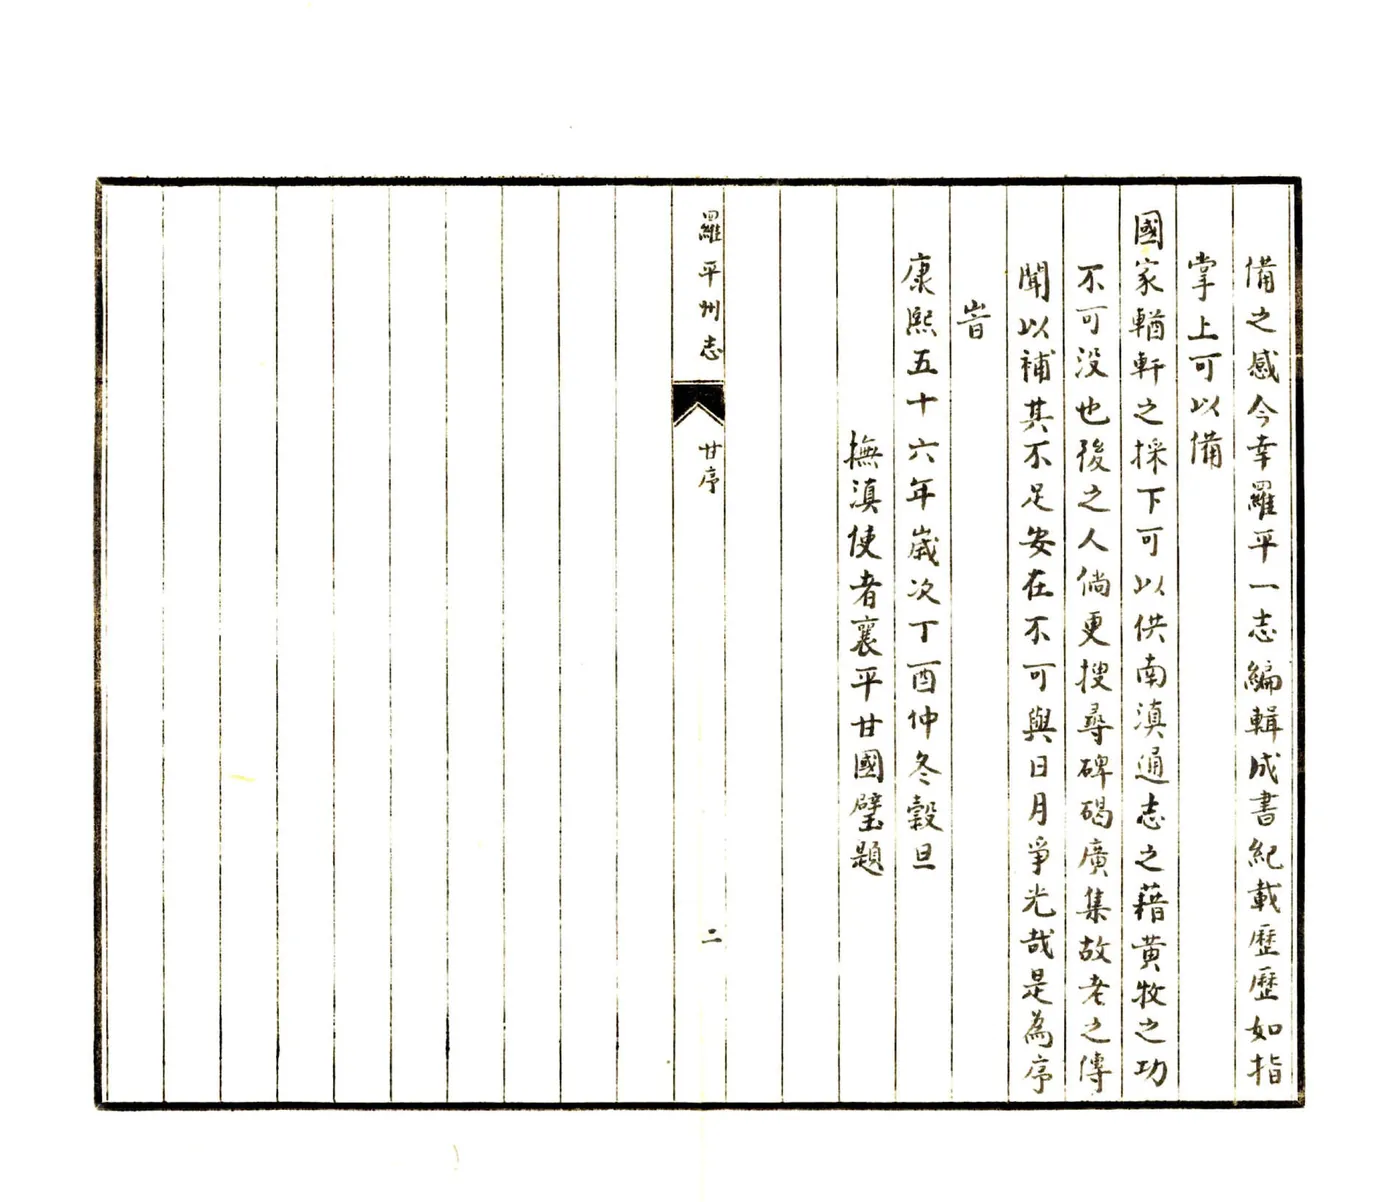 備之感今幸羅平一志編輯成書紀載歷歷如指
掌上可以備
國家輶軒之採下可以供南滇通志之藉黄牧之功
不可没也後之人倘更搜尋碑碣廣集故老之傳
聞以補其不足安在不可與日月爭光哉是為序
旹
康熙五十六年嵗次丁酉仲冬榖旦
撫滇使者襄平甘國璧題
羅平州志
甘序
二